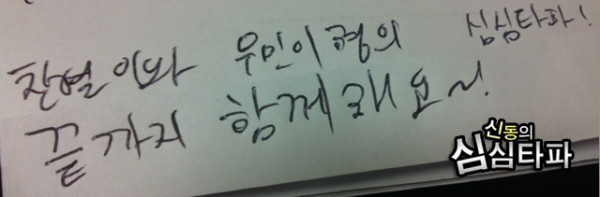 찬열이와 우민이형의 심심타파!
끝까지 함께해요~!
신동의
심심타파